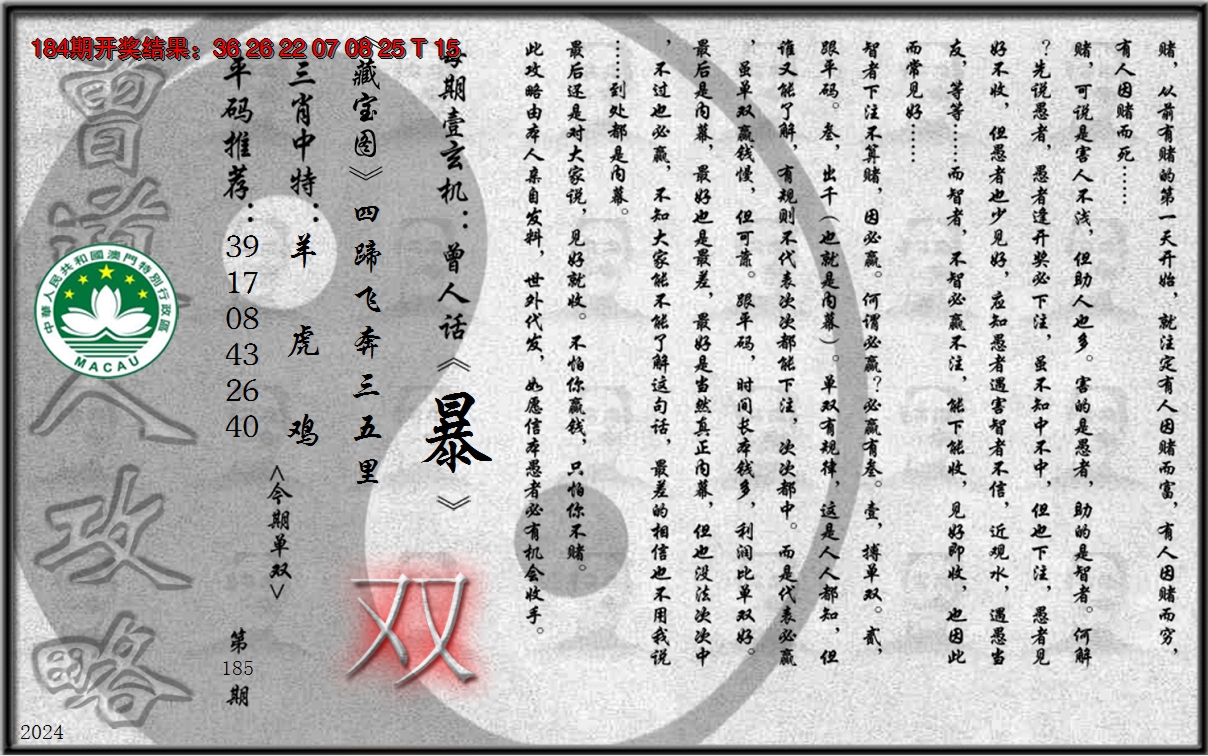 184期开奖结果：36 26 22 07 08 25 T 15
赌，从前有赌的第一天开始，就注定有人因赌而富，有人因赌而穷，
有人因赌而死……
赌，可说是害人不浅，但助人也多。害的是愚者，助的是智者。何解
？先说愚者，愚者逢开奖必下注，虽不知中不中，但也下注，愚者见
好不收，但愚者也少见好，应知愚者遇害智者不信，近观水，遇愚当
友，等等……而智者，不智必赢不注，能下能收，见好即收，也因此
而常见好……
智者下注不算赌，因必赢。何谓必赢？必赢有叁。壹，搏单双。贰，
跟平码。叁，出千（也就是内幕）。单双有规律，这是人人都知，但
谁又能了解，有规则不代表次次都能下注，次次都中。而是代表必赢
，虽单双赢钱慢，但可靠。跟平码，时间长本钱多，利润比单双好。
最后是内幕，最好也是最差，最好是当然真正内幕，但也没法次次中
，不过也必赢，不知大家能不能了解这句话，最差的相信也不用我说
……到处都是内幕。
最后还是对大家说，见好就收。不怕你赢钱，只怕你不赌。
此攻略由本人亲自发料，世外代发，如愿信本愚者必有机会收手。
每期壹玄机：曾人话《暴》
《藏宝图》四蹄飞奔三五里
双
三肖中特：羊 虎 鸡
<今期单双>
平码推荐：39 17 08 43 26 40
第185期
曾道人攻略
中華人民共和國澳門特別行政區
MACAU
2024